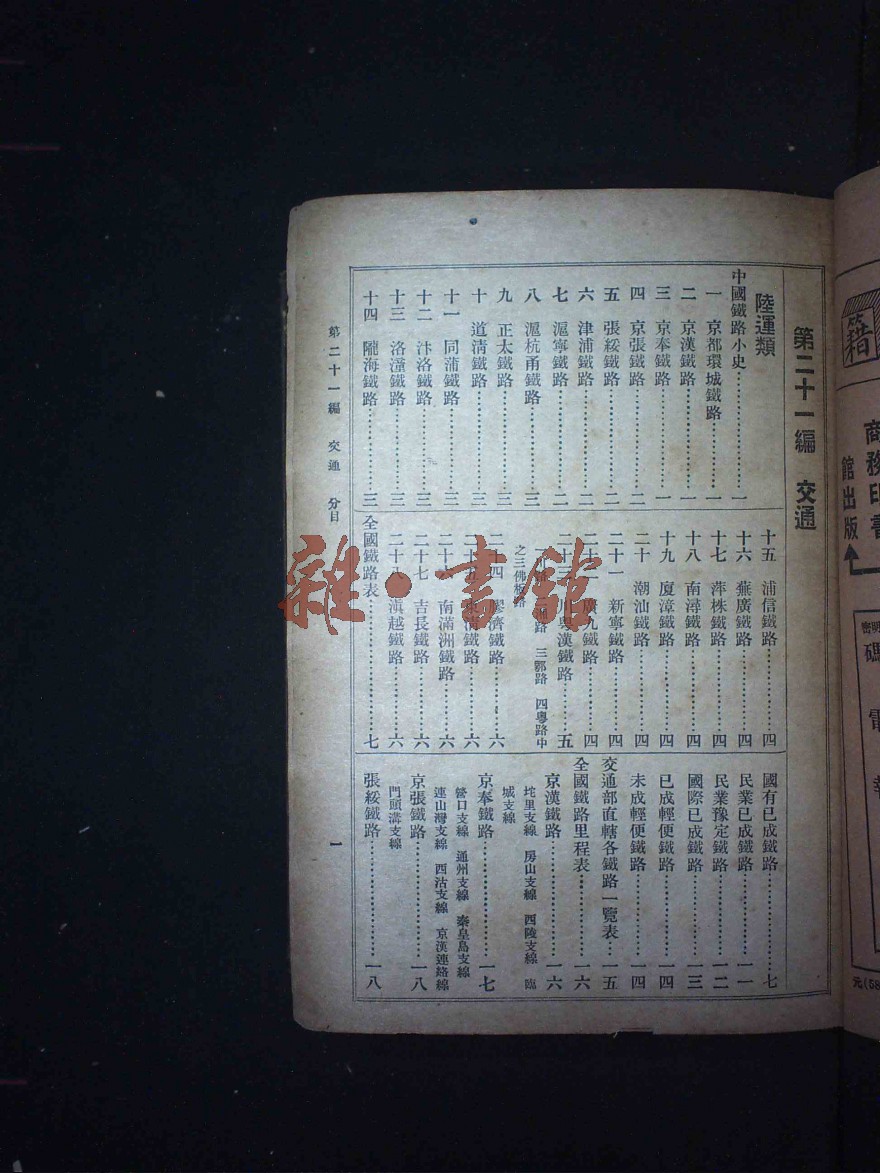 第二十一編　交通
陸運類
中國鐵路小史…………一
一　京都環城鐵路…………一
二　京漢鐵路…………一
三　京奉鐵路…………一
四　京張鐵路…………二
五　張綏鐵路…………二
六　津浦鐵路…………二
七　滬寧鐵路…………二
八　滬杭甬鐵路…………三
九　正太鐵路…………三
十　道清鐵路…………三
十一　同蒲鐵路…………三
十二　汴洛鐵路…………三
十三　洛潼鐵路…………三
十四　隴海鐵路…………三
十五　浦信鐵路…………四
十六　蕪廣鐵路…………四
十七　萍株鐵路…………四
十八　南潯鐵路…………四
十九　廈漳鐵路…………四
二十　潮汕鐵路…………四
二十一　新寧鐵路…………四
二十二　廣九鐵路…………四
二十三　川粵漢鐵路…………五
三鄂路　四粵路中
之三佛板路
二十四　膠濟鐵路…………六
二十五　東清鐵路…………六
二十六　南滿洲鐵路…………六
二十七　吉長鐵路…………六
二十八　滇越鐵路…………六
全國鐵路表…………七
國有已成鐵路…………七
民業已成鐵路…………一一
民業豫定鐵路…………一二
國際已成鐵路…………一三
已成輕便鐵路…………一四
未成輕便鐵路…………一四
交通部直轄各鐵路一覽表…………一五
全國鐵路里程表…………一六
京漢鐵路…………一六
坨里支線　房山支線　西陵支線　臨
城支線
京奉鐵路…………一七
營口支線　通州支線　秦皇島支線
連山灣支線　西沽支線　京漢連絡線
京張鐵路…………一八
門頭溝支線
張綏鐵路…………一八
第二十一編　交通　分目
一
雜·書館
籍
商務印書
館出版
碼電報
元(58